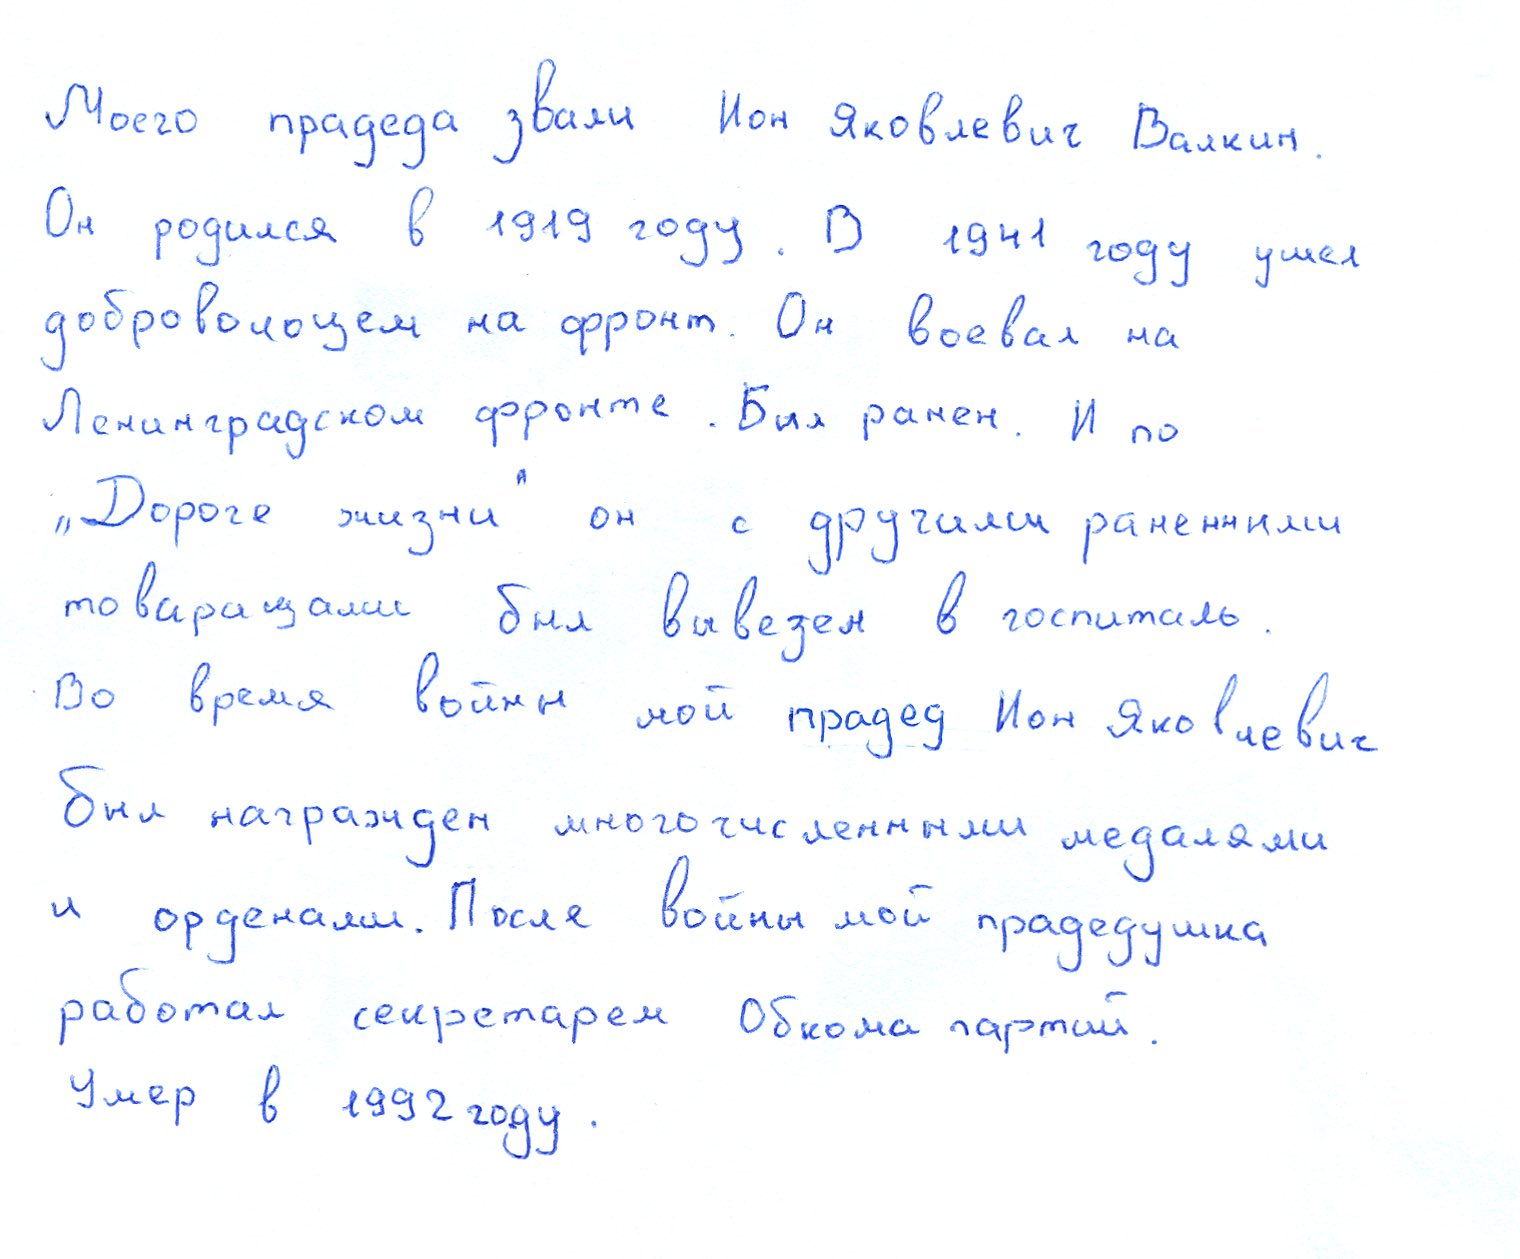 Моего прадеда звали Ион Яковлевич Валкин.
Он родился в 1919 году. В 1941 году ушел
добровольцем на фронт. Он воевал на
Ленинградском фронте. Был ранен. И по
„Дороге жизни" он с другими ранеными
товарищами был вывезен в госпиталь.
Во время войны мой прадед Ион Яковлевич
был награжден многочисленными медалями
и орденами. После войны мой прадедушка
работал секретарем Обкома партий.
Умер в 1992 году.